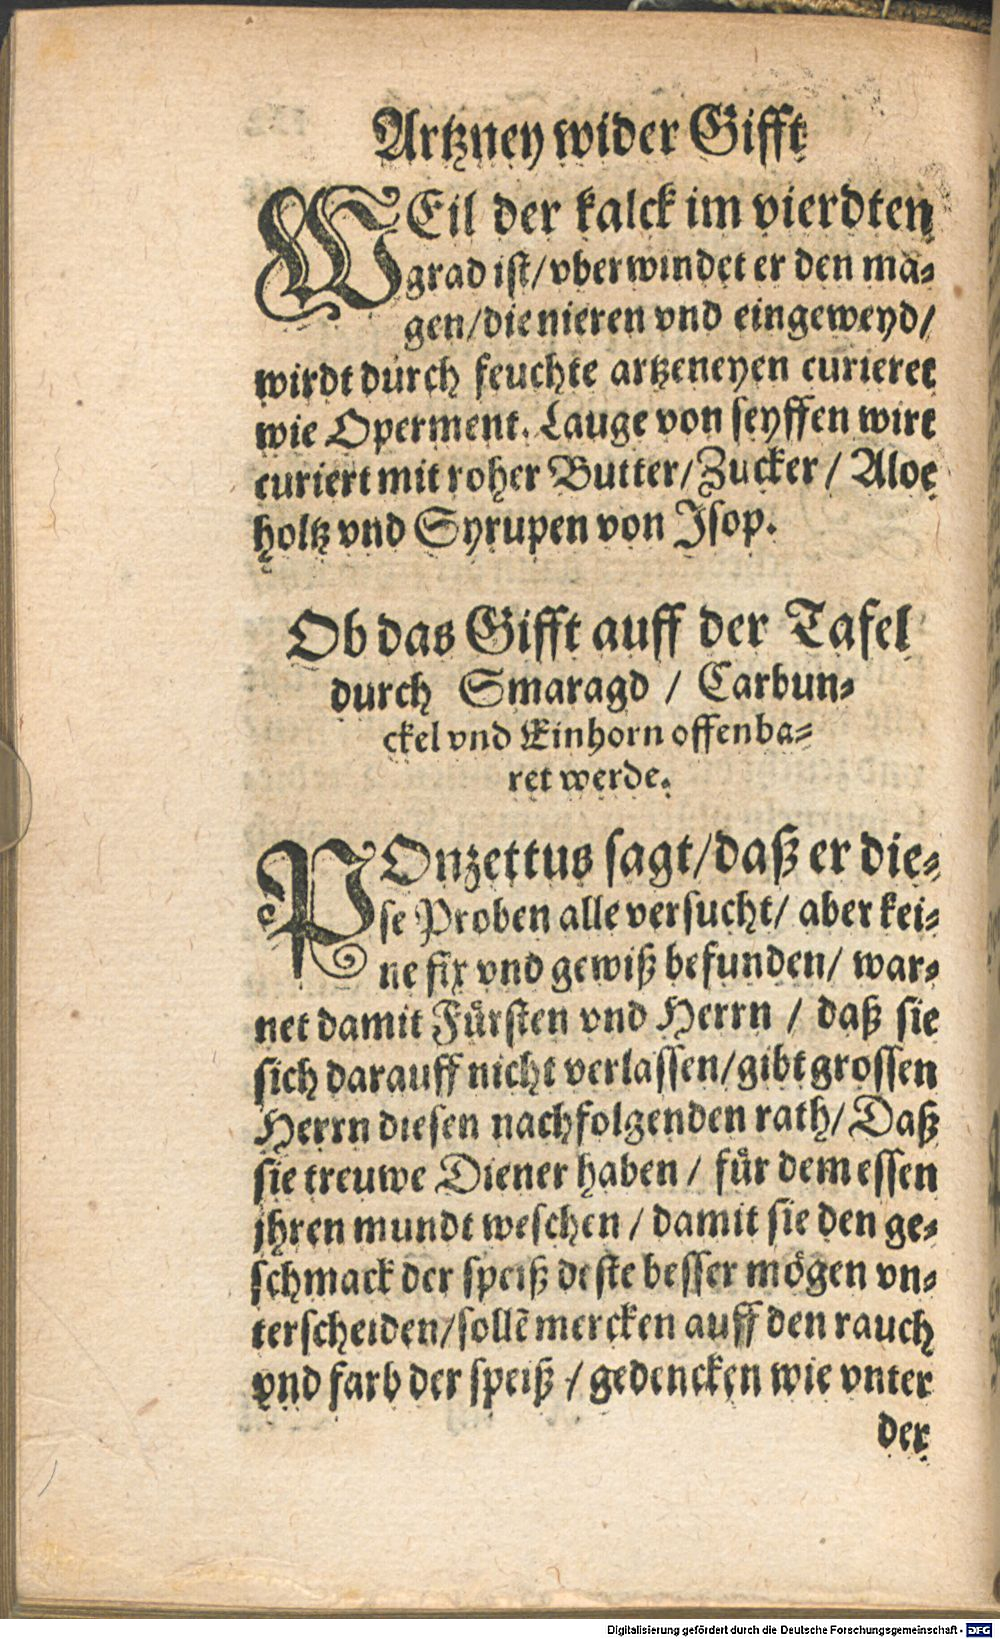 Artzney wider Gifft
WEil der kalck im vierdten
grad ist/ vberwindet er den ma-
gen/ die nieren vnd eingeweyd/
wirdt durch feuchte artzeneyen curieret
wie Operment. Lauge von seyffen wirt
curiert mit roher Butter/ Zucker / Aloe
holtz vnd Syrupen von Isop.
Ob das Gifft auff der Tafel
durch Smaragd / Carbun-
ckel vnd Einhorn offenba-
ret werde.
POnzettus sagt/ daß er die-
se Proben alle versucht/ aber kei-
ne fix vnd gewiß befunden/ war-
net damit Fürsten vnd Herrn / daß sie
sich darauff nicht verlassen/ gibt grossen
Herrn diesen nachfolgenden rath/ Daß
sie treuwe Diener haben / für dem essen
jhren mundt weschen / damit sie den ge-
schmack der speiß deste besser mögen vn-
terscheiden/ sollẽ mercken auff den rauch
vnd farb der speiß / gedencken wie vnter
der
Digitalisierung gefördert durch die Deutsche Forschungsgemeinschaft - DFG